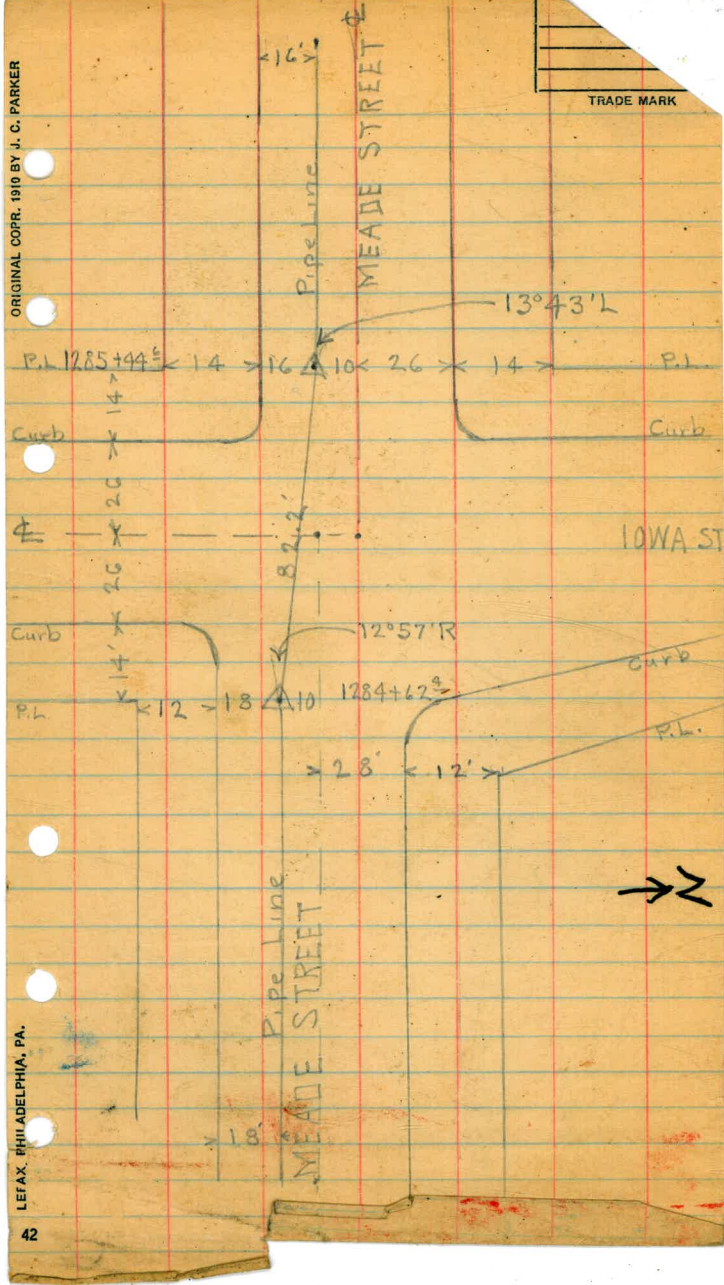 ORIGINAL COPR. 1910 BY J. C. PARKER
TRADE MARK
16'
Pipe Line
MEADE STREET ℄
13°43'L
P.L 1285+44⁶ 14 16 10 26 14 P.L.
14
Curb
Curb
26
82.2'
℄
IOWA ST
26
Curb
12°57'R
Curb
14'
P.L.
12 18 10 1284+62⁴
P.L.
28' 12'
N
Pipe Line
MEADE STREET
18'
LEFAX, PHILADELPHIA, PA.
42